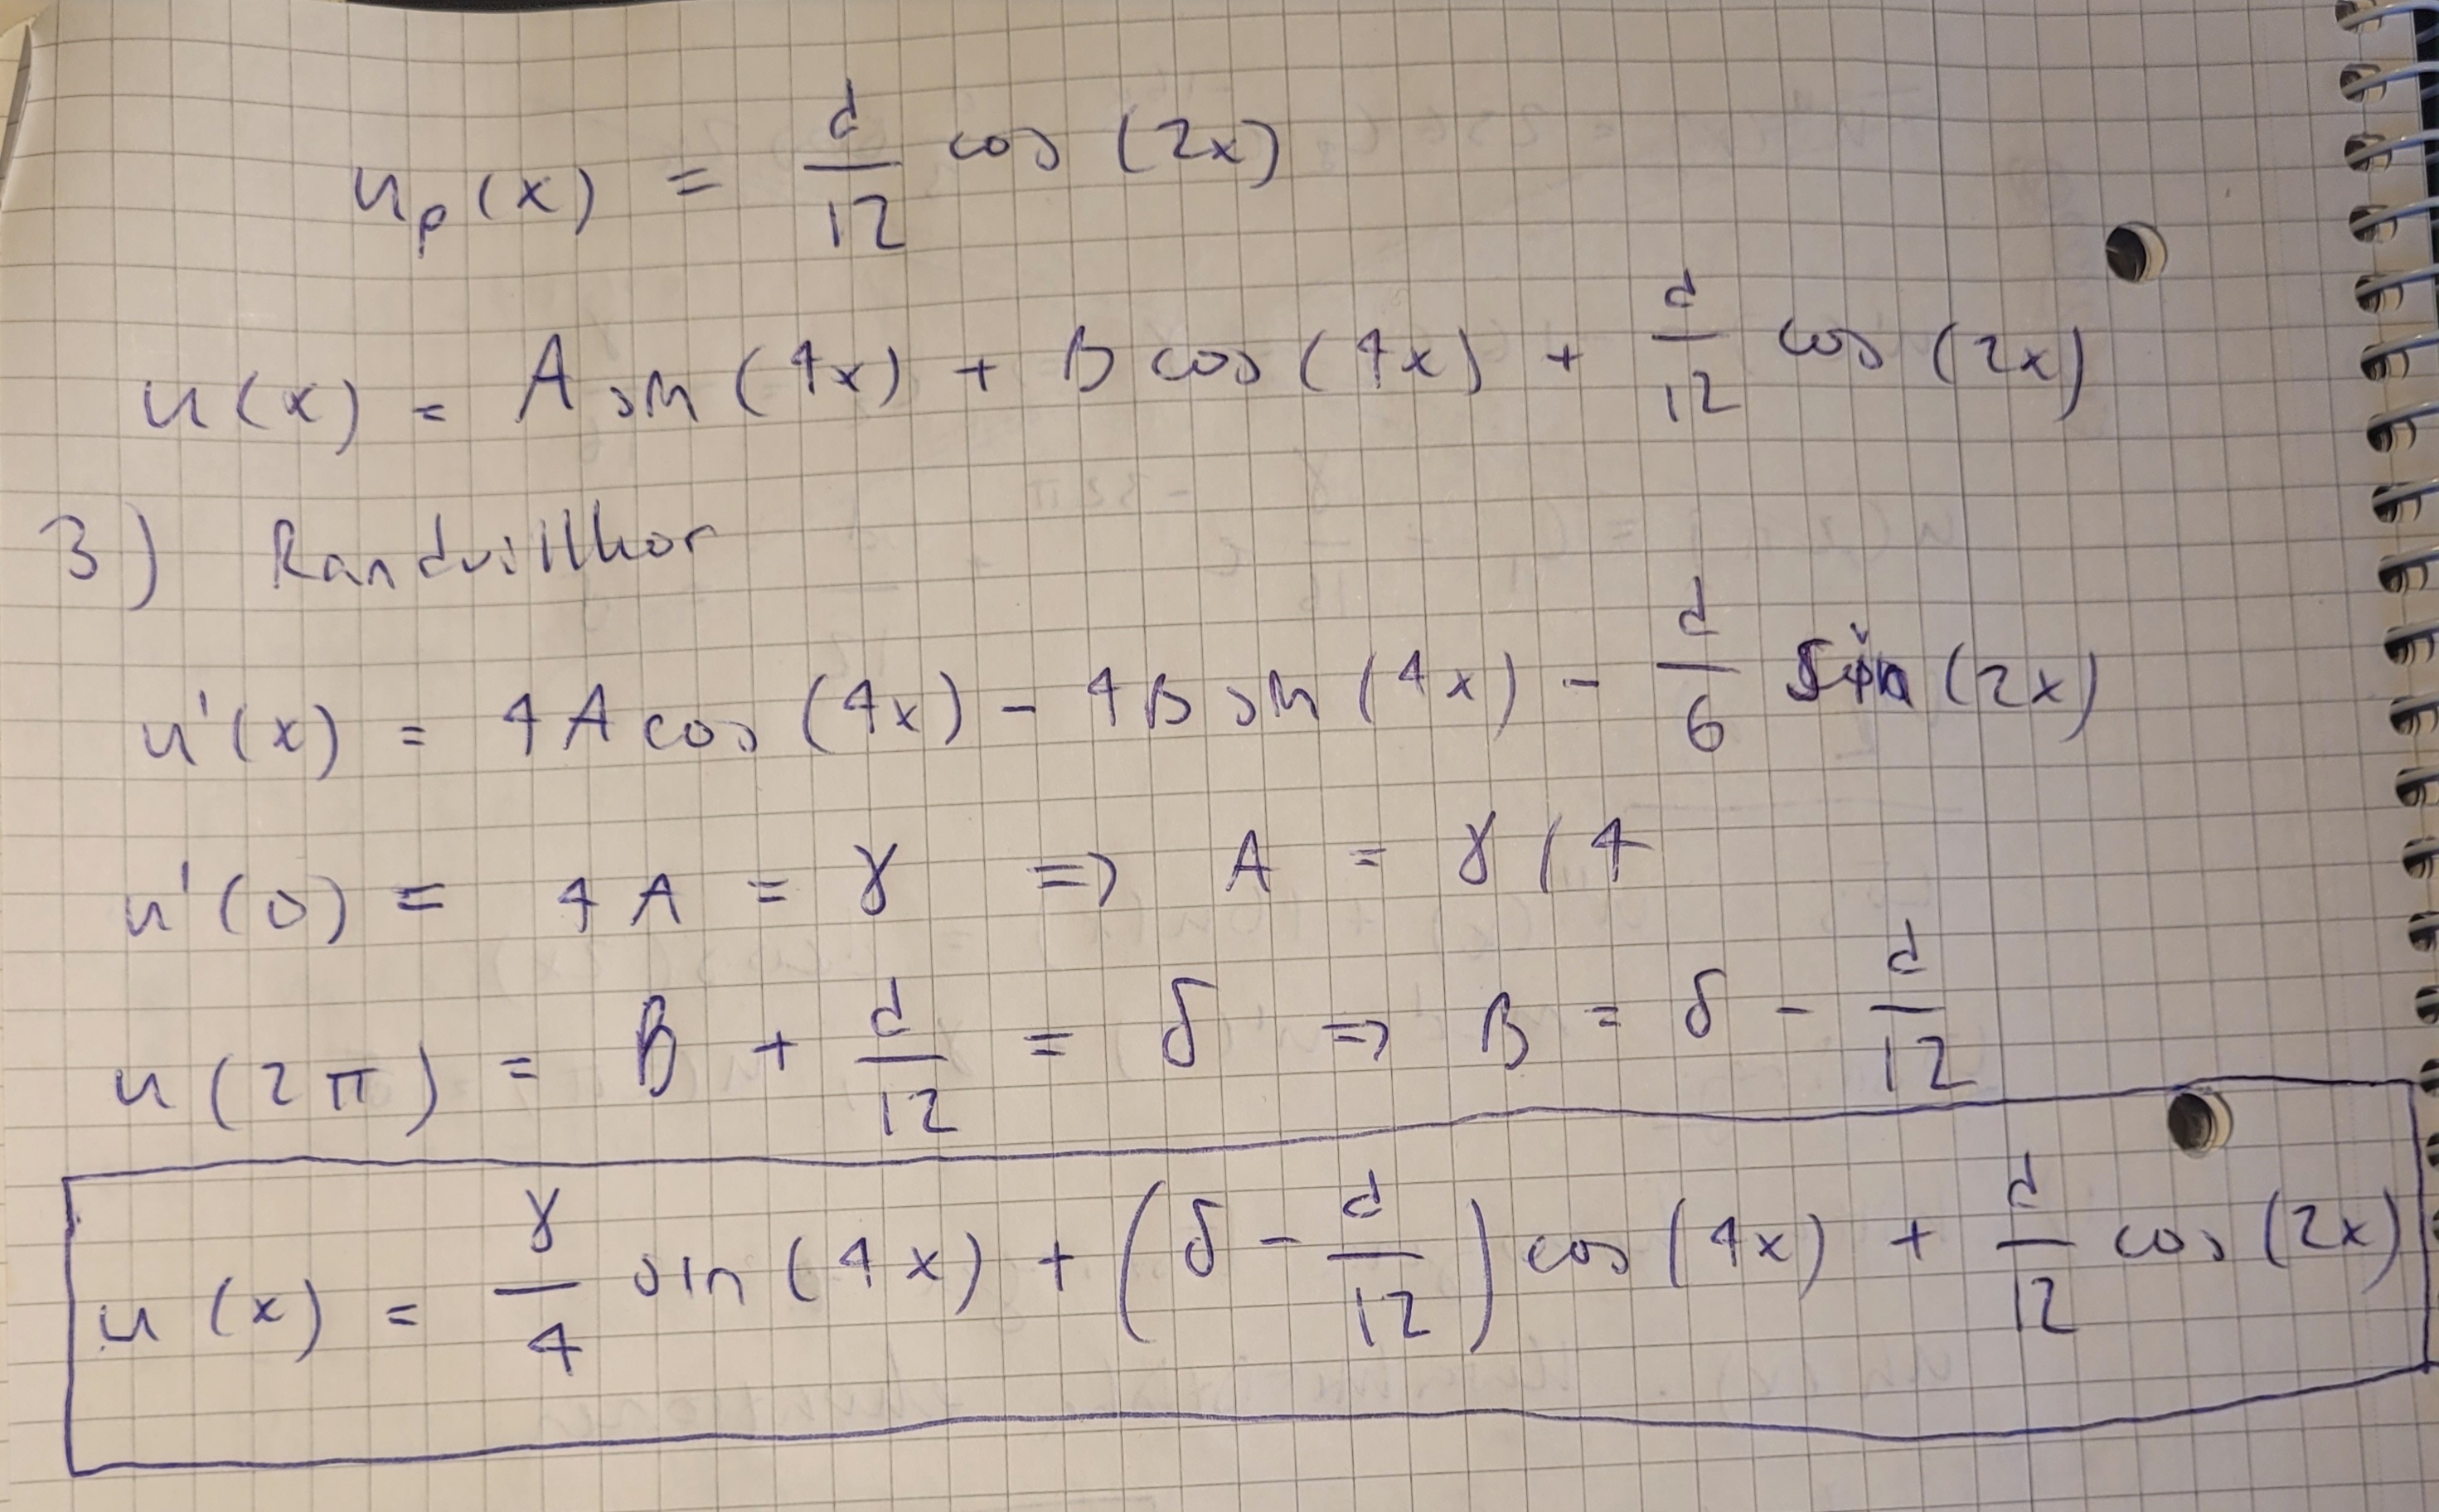 u_p(x) = d/12 cos(2x)
u(x) = A sin(4x) + B cos(4x) + d/12 cos(2x)
3) Randvillkor
u'(x) = 4A cos(4x) - 4B sin(4x) - d/6 sin(2x)
u'(0) = 4A = γ => A = γ/4
u(2π) = B + d/12 = δ => B = δ - d/12
u(x) = γ/4 sin(4x) + (δ - d/12) cos(4x) + d/12 cos(2x)